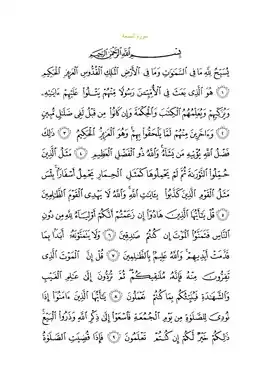 سورة الجمعة
بِسْمِ اللَّهِ الرَّحْمَٰنِ الرَّحِيمِ
يُسَبِّحُ لِلَّهِ مَا فِي السَّمَٰوَٰتِ وَمَا فِي الْأَرْضِ الْمَلِكِ الْقُدُّوسِ الْعَزِيزِ الْحَكِيمِ
١ هُوَ الَّذِي بَعَثَ فِي الْأُمِّيِّـۧنَ رَسُولًا مِّنْهُمْ يَتْلُوا۟ عَلَيْهِمْ ءَايَٰتِهِۦ
وَيُزَكِّيهِمْ وَيُعَلِّمُهُمُ الْكِتَٰبَ وَالْحِكْمَةَ وَإِن كَانُوا۟ مِن قَبْلُ لَفِي ضَلَٰلٍ مُّبِينٍ
٢ وَءَاخَرِينَ مِنْهُمْ لَمَّا يَلْحَقُوا۟ بِهِمْ وَهُوَ الْعَزِيزُ الْحَكِيمُ ٣ ذَٰلِكَ
فَضْلُ اللَّهِ يُؤْتِيهِ مَن يَشَآءُ وَاللَّهُ ذُو الْفَضْلِ الْعَظِيمِ ٤ مَثَلُ الَّذِينَ
حُمِّلُوا۟ التَّوْرَىٰةَ ثُمَّ لَمْ يَحْمِلُوهَا كَمَثَلِ الْحِمَارِ يَحْمِلُ أَسْفَارًۢا بِئْسَ
مَثَلُ الْقَوْمِ الَّذِينَ كَذَّبُوا۟ بِـَٔايَٰتِ اللَّهِ وَاللَّهُ لَا يَهْدِي الْقَوْمَ الظَّٰلِمِينَ
٥ قُلْ يَٰٓأَيُّهَا الَّذِينَ هَادُوٓا۟ إِن زَعَمْتُمْ أَنَّكُمْ أَوْلِيَآءُ لِلَّهِ مِن دُونِ
النَّاسِ فَتَمَنَّوُا۟ الْمَوْتَ إِن كُنتُمْ صَٰدِقِينَ ٦ وَلَا يَتَمَنَّوْنَهُۥٓ أَبَدًۢا بِمَا
قَدَّمَتْ أَيْدِيهِمْ وَاللَّهُ عَلِيمٌۢ بِالظَّٰلِمِينَ ٧ قُلْ إِنَّ الْمَوْتَ الَّذِي
تَفِرُّونَ مِنْهُ فَإِنَّهُۥ مُلَٰقِيكُمْ ثُمَّ تُرَدُّونَ إِلَىٰ عَٰلِمِ الْغَيْبِ
وَالشَّهَٰدَةِ فَيُنَبِّئُكُم بِمَا كُنتُمْ تَعْمَلُونَ ٨ يَٰٓأَيُّهَا الَّذِينَ ءَامَنُوٓا۟ إِذَا
نُودِيَ لِلصَّلَوٰةِ مِن يَوْمِ الْجُمُعَةِ فَاسْعَوْا۟ إِلَىٰ ذِكْرِ اللَّهِ وَذَرُوا۟ الْبَيْعَ
ذَٰلِكُمْ خَيْرٌ لَّكُمْ إِن كُنتُمْ تَعْلَمُونَ ٩ فَإِذَا قُضِيَتِ الصَّلَوٰةُ